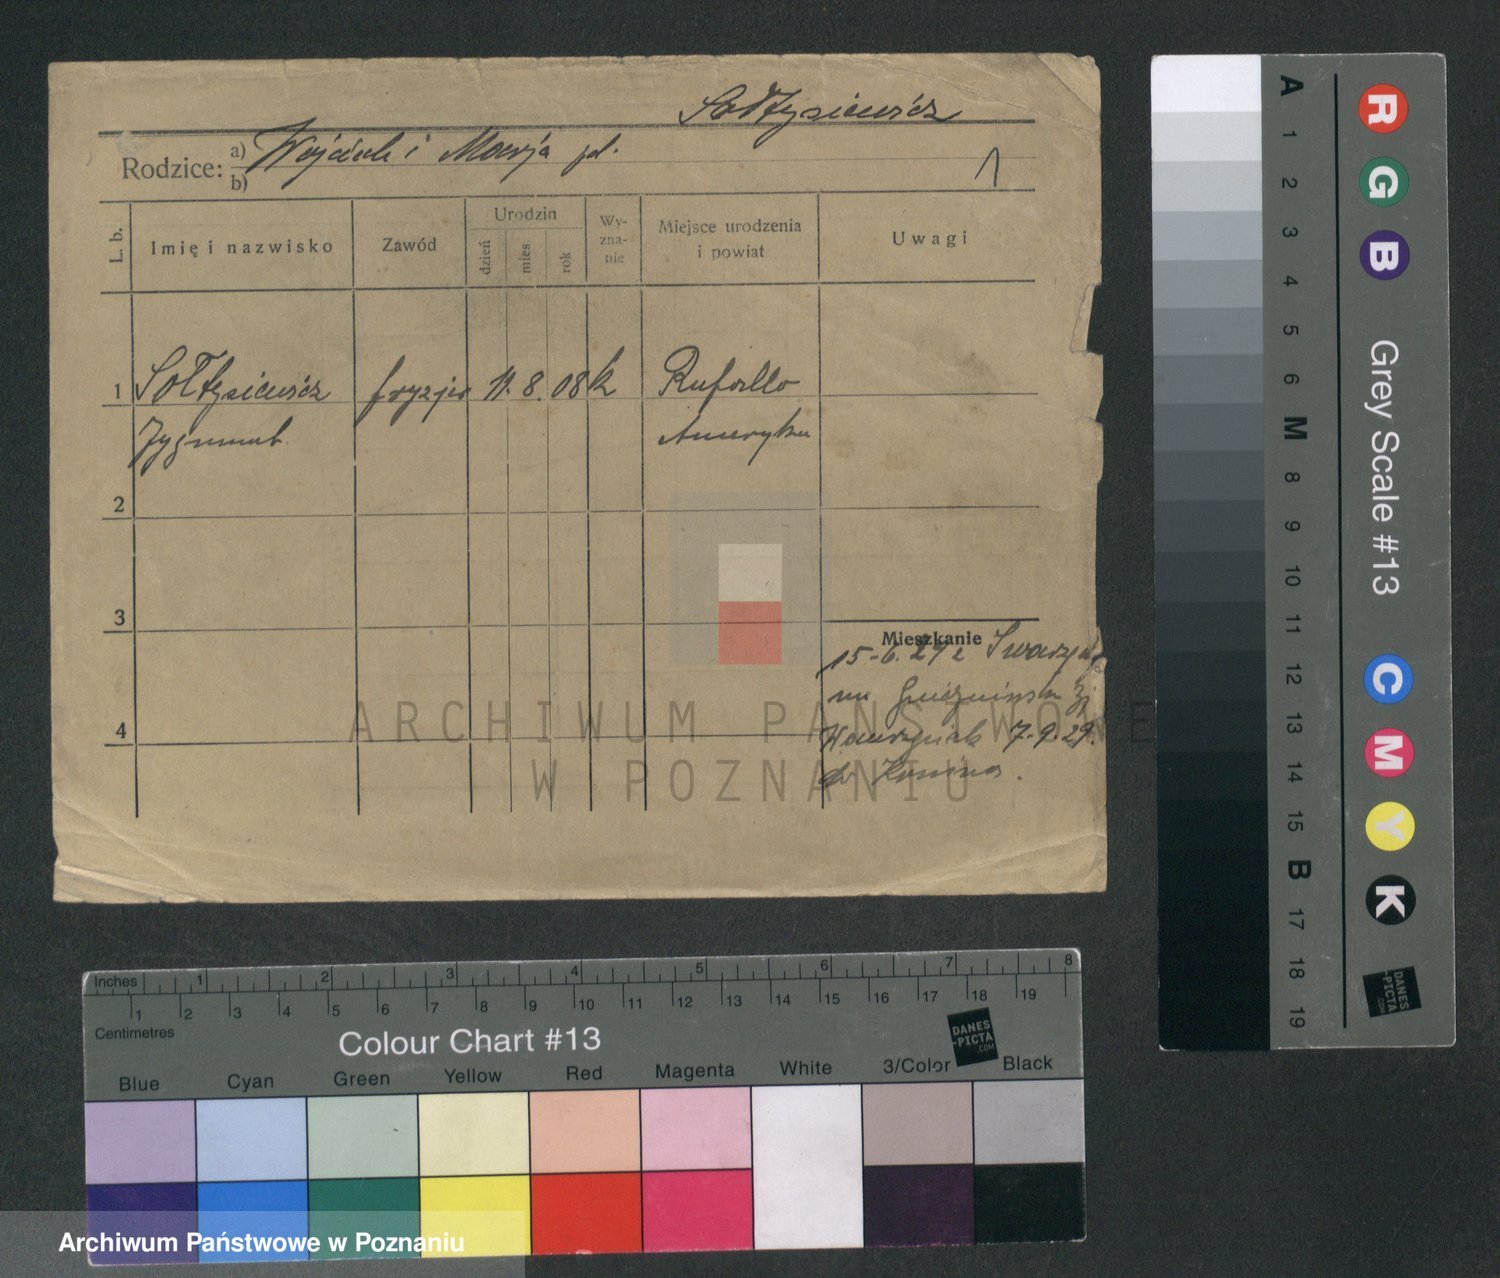 Sołtysiewicz
Rodzice: a) Wojciech i Marja pl.
b)
1
L. b.
Imię i nazwisko
Zawód
Urodzin
dzień
mies
rok
Wy-
zna-
nie
Miejsce urodzenia
i powiat
Uwagi
1 Sołtysiewicz fryzjer 11. 8. 08 k Rufallo
Zygmunt Ameryka
2
3
Mieszkanie
15-6. 29 z Swarzędz
Gnieźnieńska
Wawrzyniak 7.9.29.
do Konina.
4
ARCHIWUM PAŃSTWOWE
W POZNANIU
A 1 2 3 4 5 6 M 8 9 10 11 12 13 14 15 B 17 18 19
R G B
Grey Scale #13
C M Y K
DANES
-PICTA
.COM
Inches 1 2 3 4 5 6 7 8
1 2 3 4 5 6 7 8 9 10 11 12 13 14 15 16 17 18 19
Centimetres
Colour Chart #13
DANES
-PICTA
.COM
Blue Cyan Green Yellow Red Magenta White 3/Color Black
Archiwum Państwowe w Poznaniu